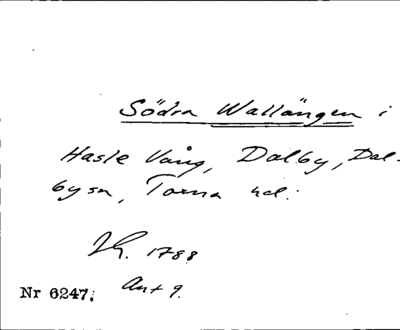 Södra Wallängen i
Hasle Vång, Dalby, Dal-
by sn, Torna hd:
1788
Nr 6247; Akt 9.